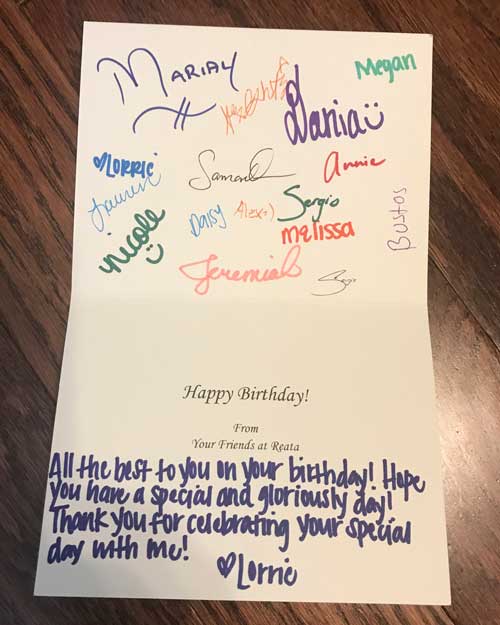 MARIAH
Megan
Dania
♥LORRIE
Samantha
Annie
Lauren
Nicole
Daisy
Alex :)
Sergio
melissa
Bustos
Jeremiah
Happy Birthday!
From
Your Friends at Reata
All the best to you on your birthday! Hope
you have a special and gloriously day!
Thank you for celebrating your special
day with me!
♥Lorrie